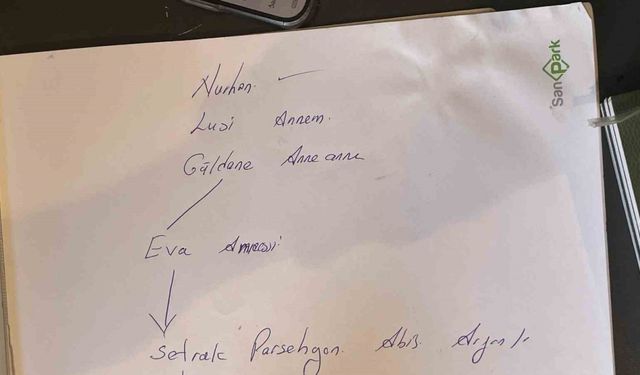 Nurhan.
Lusi Annem.
Güldane Anneanne
Eva Annesi.
Setrak Parsehyan. Abis.
SanPark